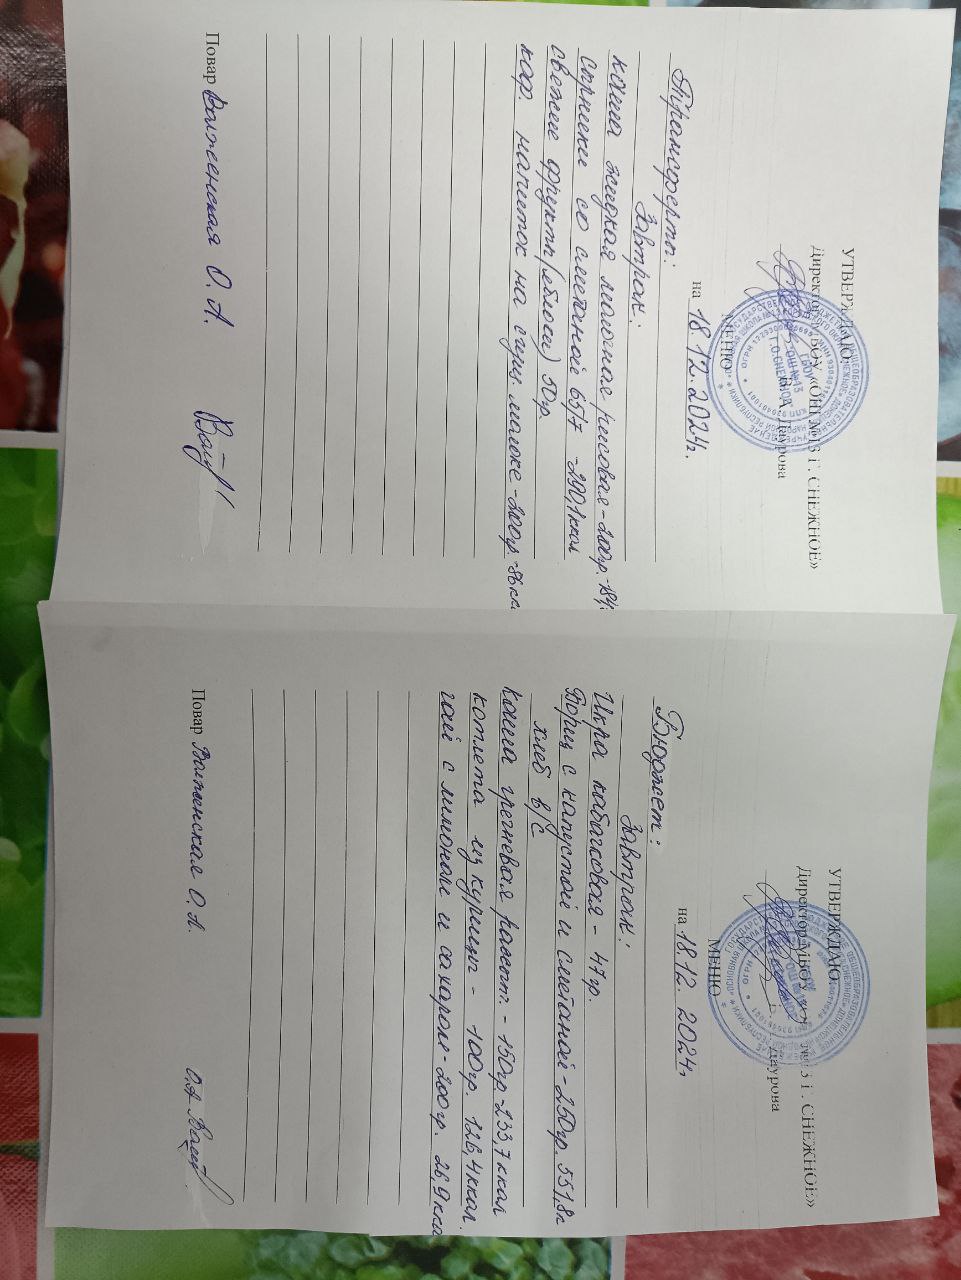 УТВЕРЖДАЮ
Директор ГБОУ «ОШ №13 Г. СНЕЖНОЕ»
В. А. Даурова
МЕНЮ
на 18.12.2024г.
Трансферты:
Завтрак:
каша жидкая молочная рисовая - 200гр. - 184
сырники со сметаной 65/7 - 290,1ккал
свежие фрукты (яблоки) 50гр.
коф. напиток на сгущ. молоке - 200гр. - 86кка
Повар Волженская О. А.
УТВЕРЖДАЮ
Директор ГБОУ №13 Г. СНЕЖНОЕ»
Даурова
МЕНЮ
на 18.12.2024г.
Бюджет:
Завтрак:
Икра кабачковая - 47гр.
Борщ с капустой и сметаной - 250гр. 551,8
хлеб в/с
Каша гречневая рассып. - 150гр - 233,7 ккал
котлета из курицы - 100гр. 126,4ккал.
чай с лимоном и сахаром - 200гр. 26,9кка
Повар Волженская О. А.